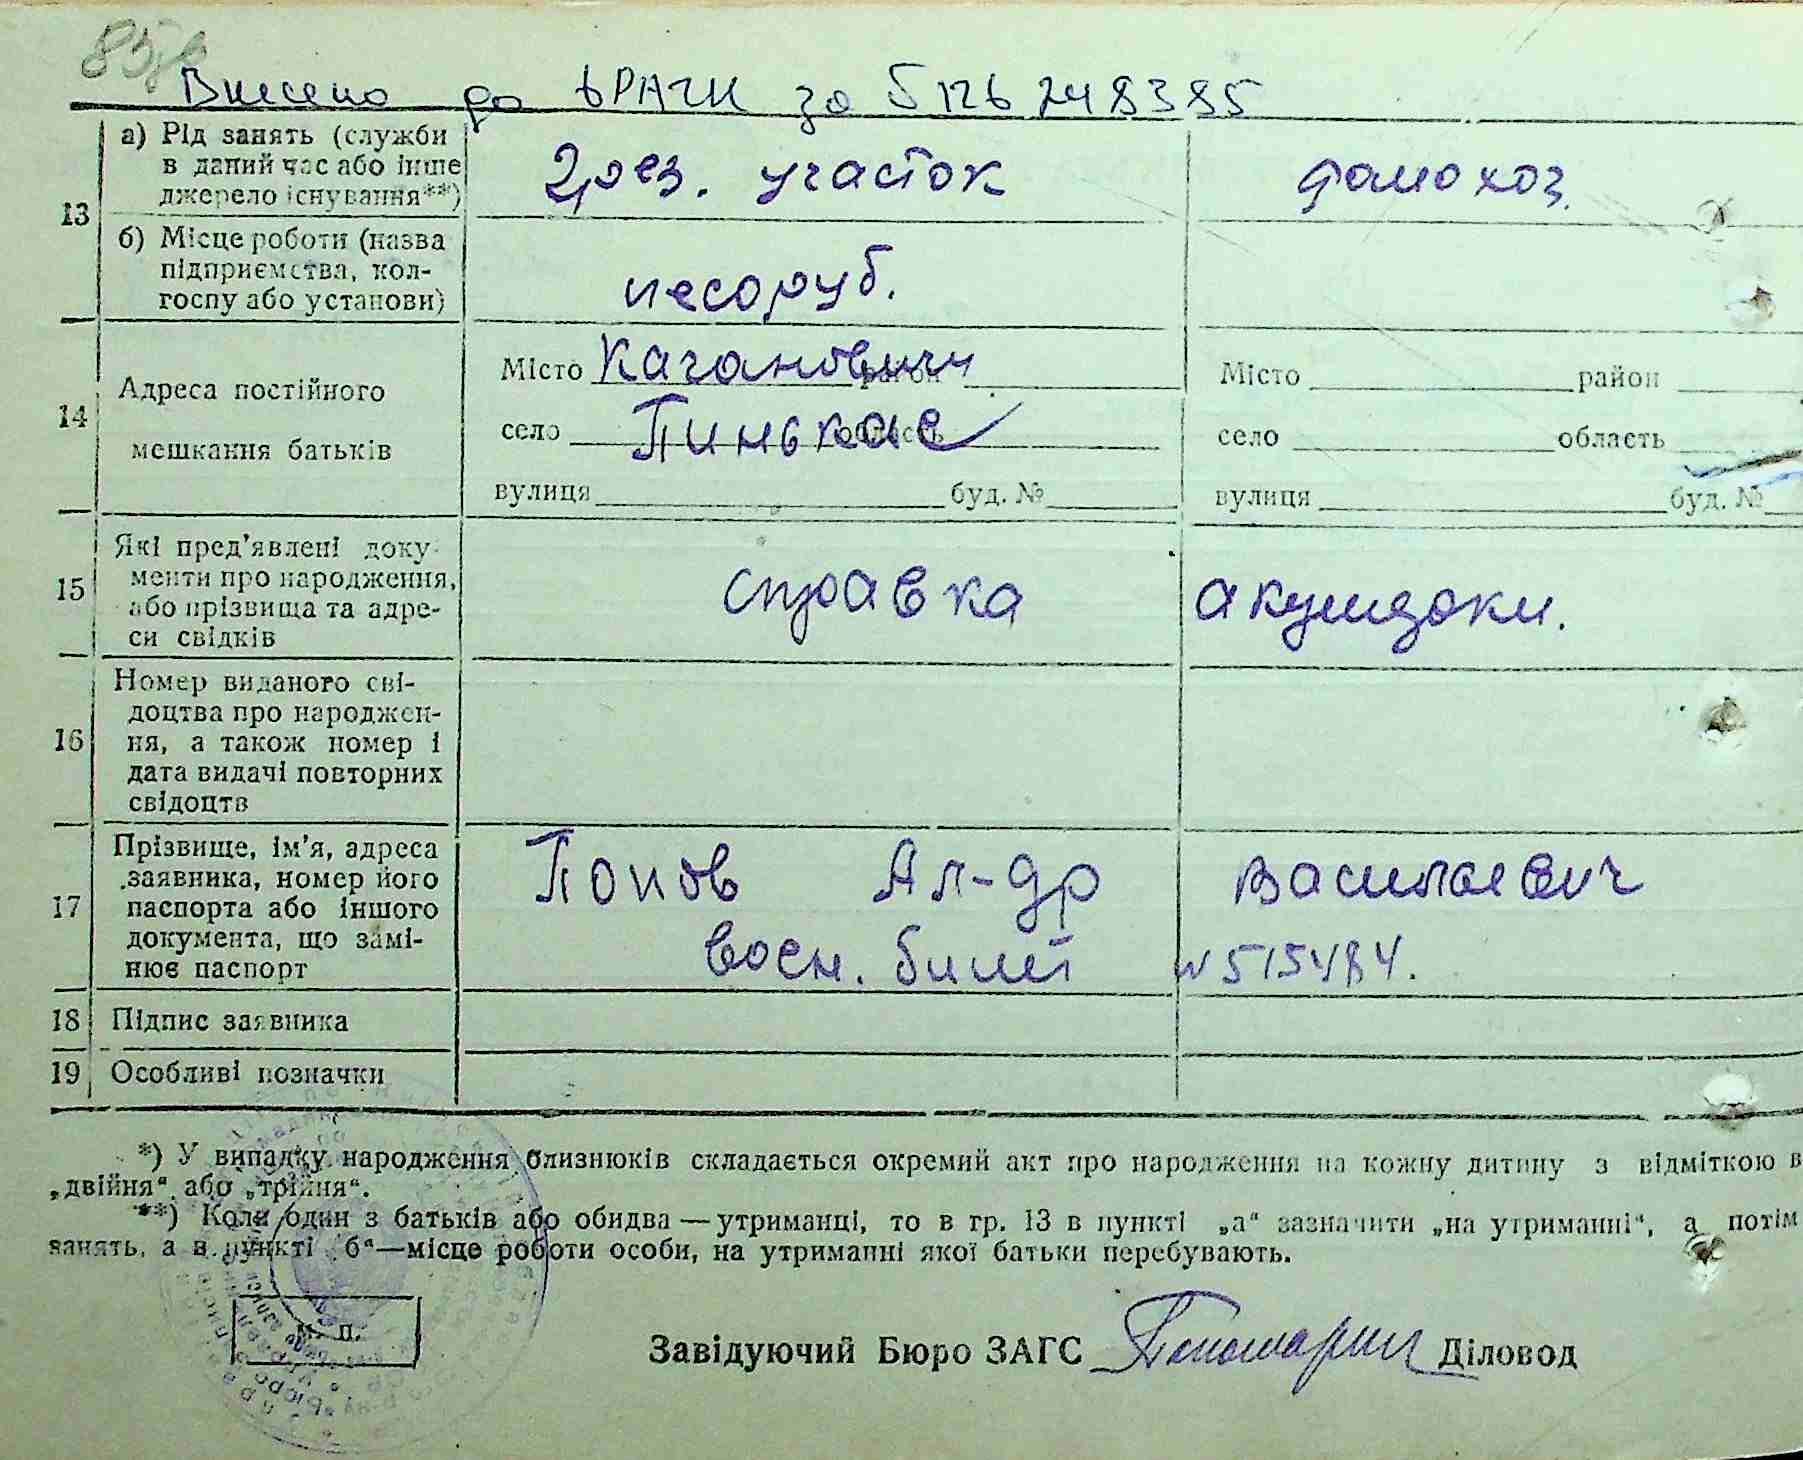 Внесено до ВРАЦС за
13 а) Рід занять (служби в даний час або інше джерело існування**) участок домохоз.
б) Місце роботи (назва підприємства, колгоспу або установи) лесоруб.
14 Адреса постійного мешкання батьків
Місто Кагановичи район Місто район
село область село область
вулиця буд. № вулиця буд. №
15 Які пред'явлені документи про народження, або прізвища та адреси свідків справка акушорки.
16 Номер виданого свідоцтва про народження, а також номер і дата видачі повторних свідоцтв
17 Прізвище, ім'я, адреса заявника, номер його паспорта або іншого документа, що замінює паспорт Попов Ал-др Васильевич
воен. билет N 515484.
18 Підпис заявника
19 Особливі позначки
*) У випадку народження близнюків складається окремий акт про народження на кожну дитину з відміткою в
„двійня“ або „трійня“.
**) Коли один з батьків або обидва — утриманці, то в гр. 13 в пункті „а“ зазначити „на утриманні“, а потім
занять, а в пункті б“—місце роботи особи, на утриманні якої батьки перебувають.
м. п.
Завідуючий Бюро ЗАГС Діловод